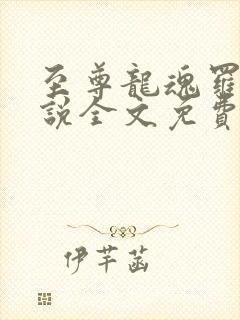 至尊龍魂羅
說全文免費
伊芊菡